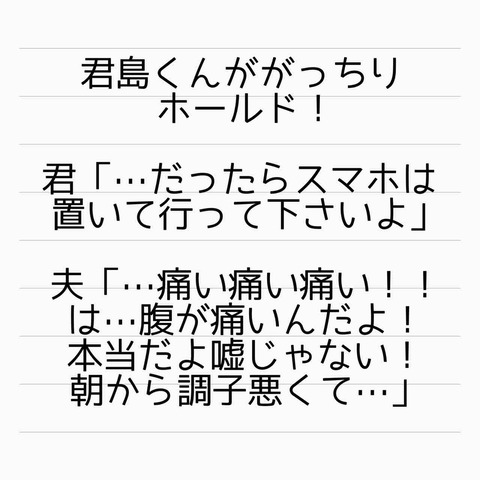 君島くんががっちり
ホールド！
君「…だったらスマホは
置いて行って下さいよ」
夫「…痛い痛い痛い！！
は…腹が痛いんだよ！
本当だよ嘘じゃない！
朝から調子悪くて…」